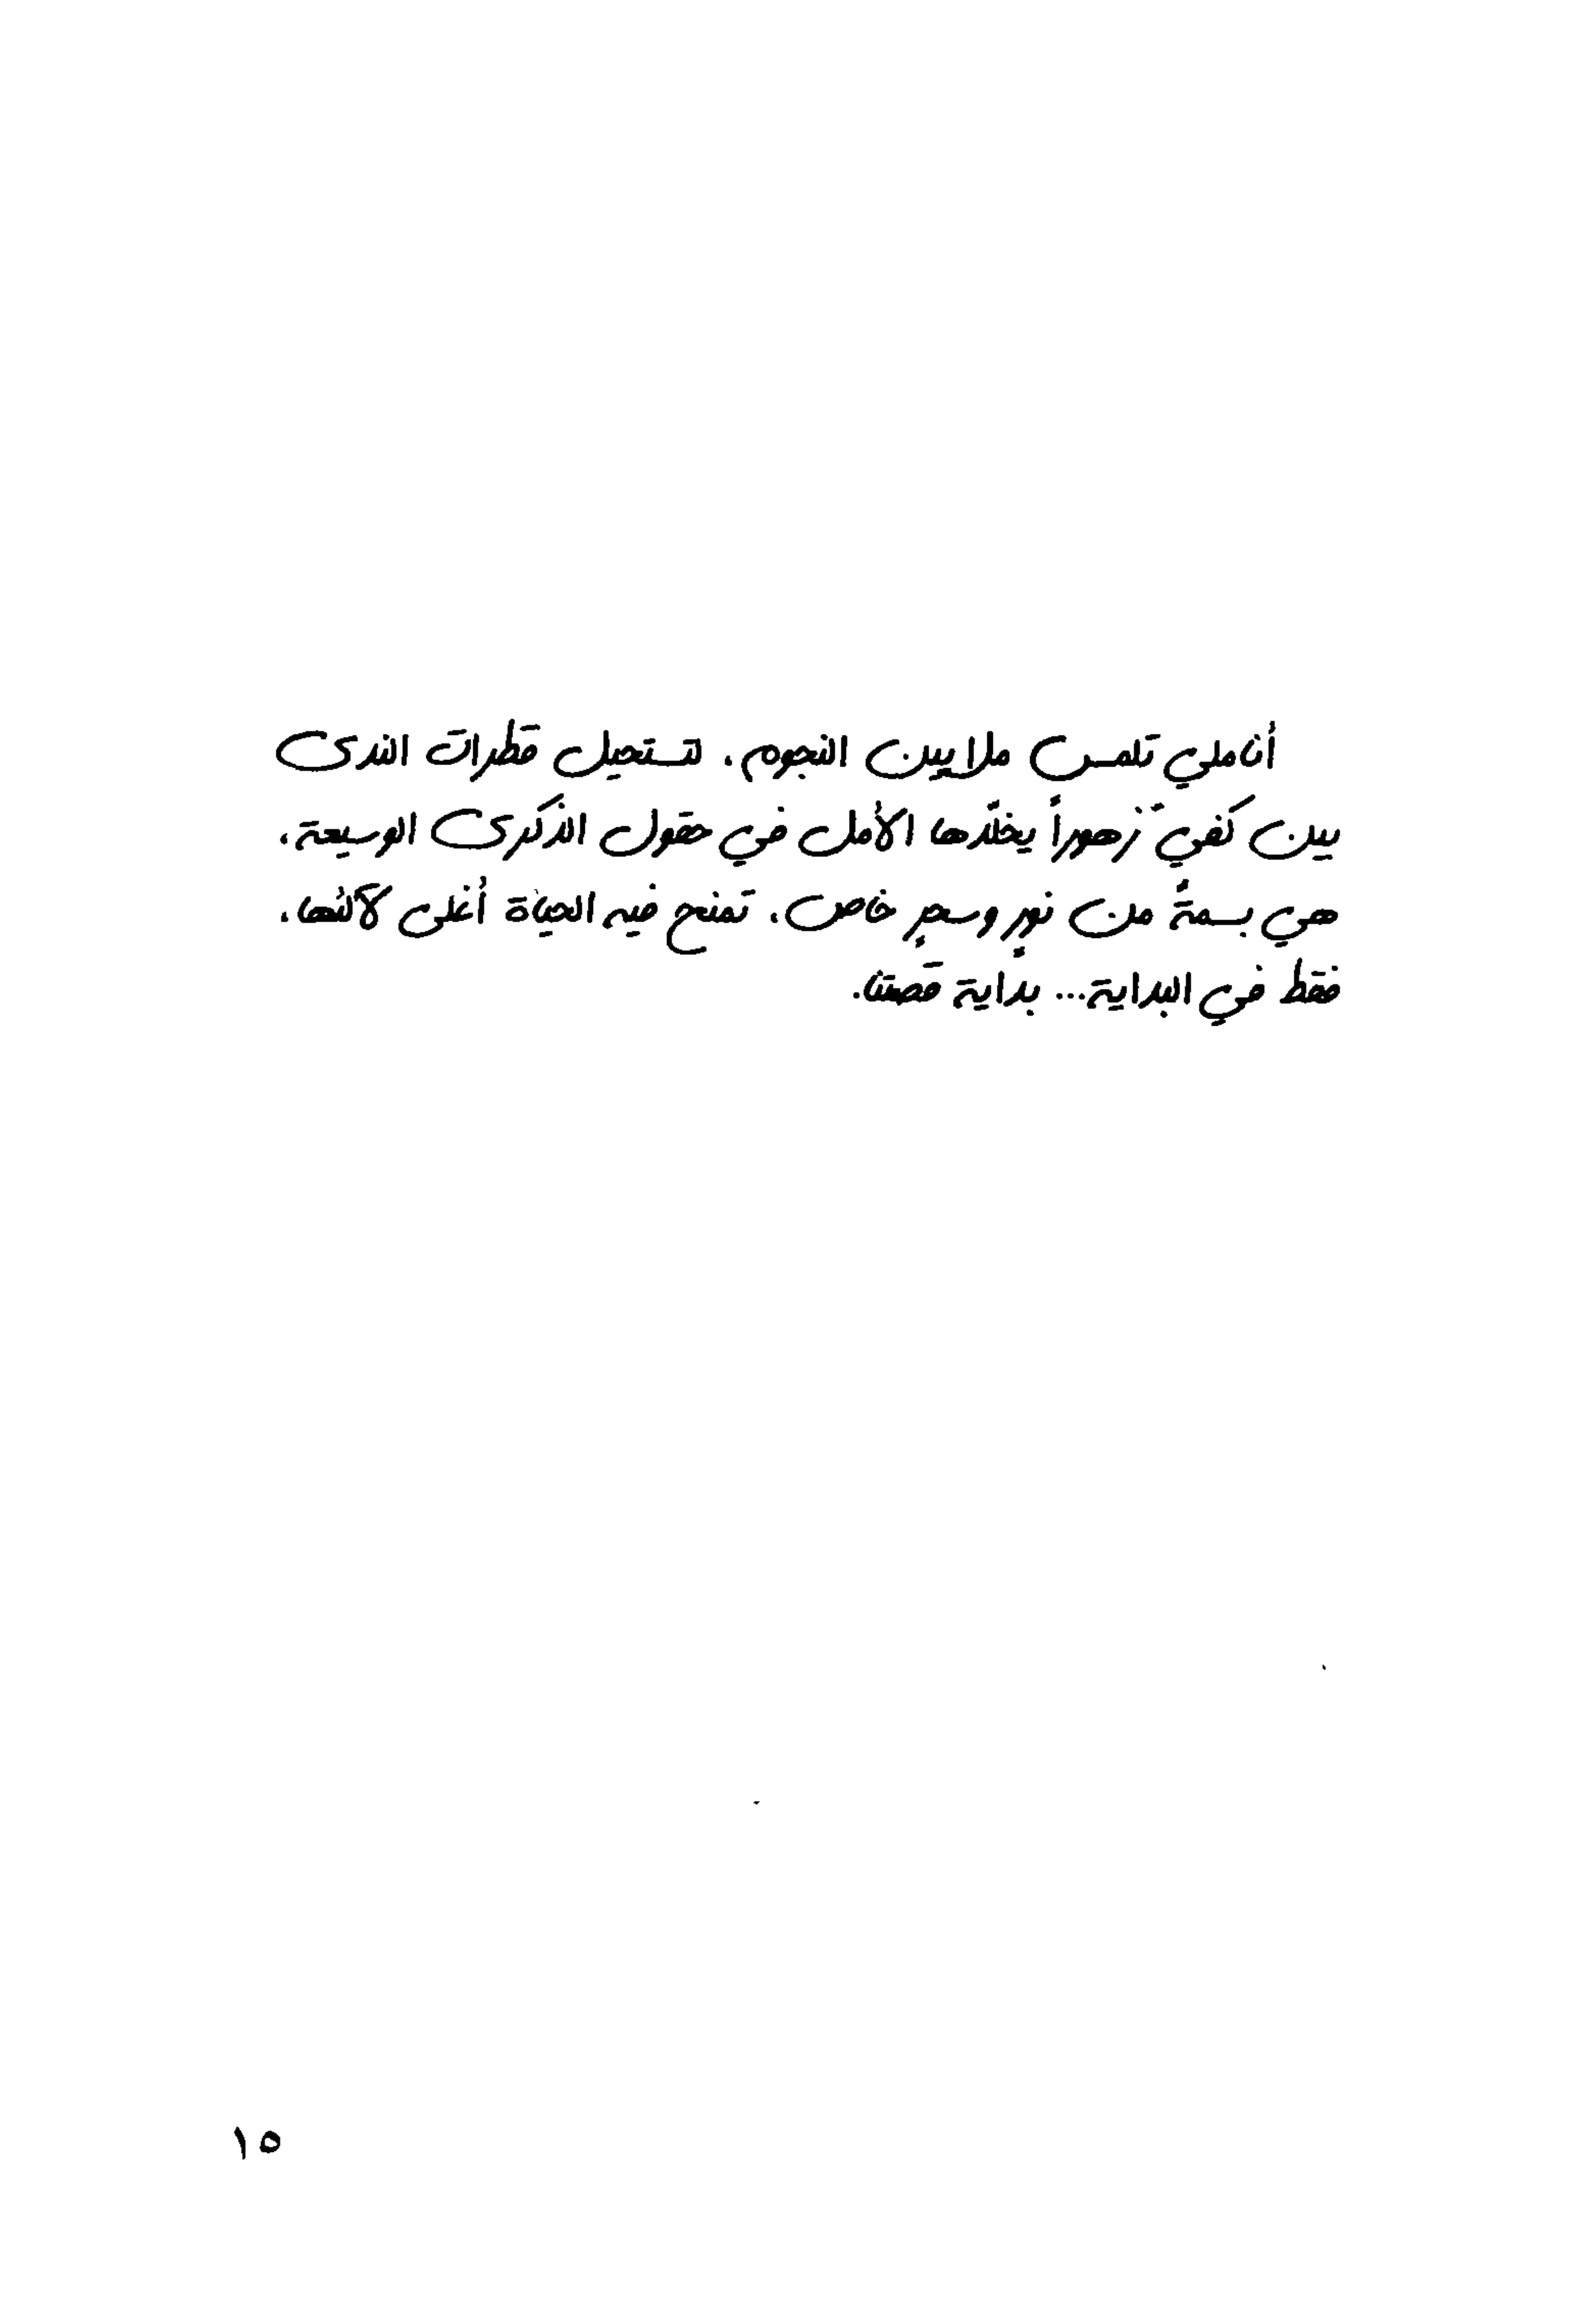 أناملي تلمس ملايين النجوم، لتستحيل قطرات الندى
بين كفيّ زهوراً يخلّدها الأمل في حقول الذكرى الوسيعة،
هي بسمةٌ من نورٍ وسحرٍ خاص، تمنح فيه الحياة أغلى لآلئها،
فقط في البداية... بداية قصتنا.
١٥